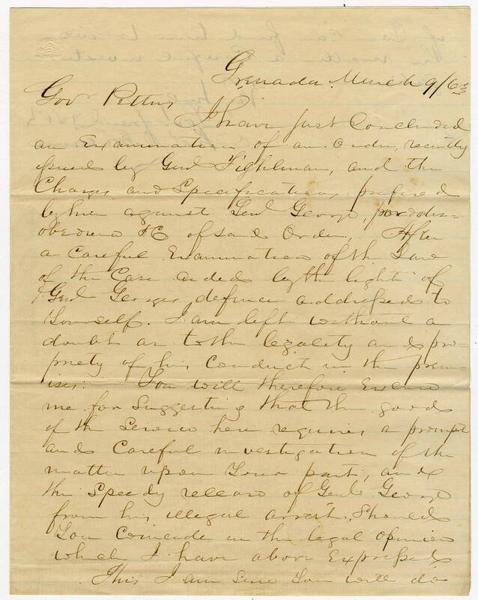 Grenada March 9/63
Gov Pettus
I have just concluded
an Examination of an Order, recently
issued by Genl Tighlman, and the
Charges and Specifications prefered
by him against Genl George, for dis-
obedience &C of said Order. After
a careful Examination of the Law
of the Case aided by the light of
Genl Georges defence addressed to
Yourself. I am left without a
doubt as to the legality and pro
priety of his Conduct in the prem
ises. You will therefore Excuse
me for Suggesting that the good
of the Service here requires a prompt
and Careful investigation of the
matter upon Your part, and
the Speedy release of Genl George
from his illegal arrest. Should
You Coincide in the legal opinion
which I have above Expressed
This I am Sure You will do